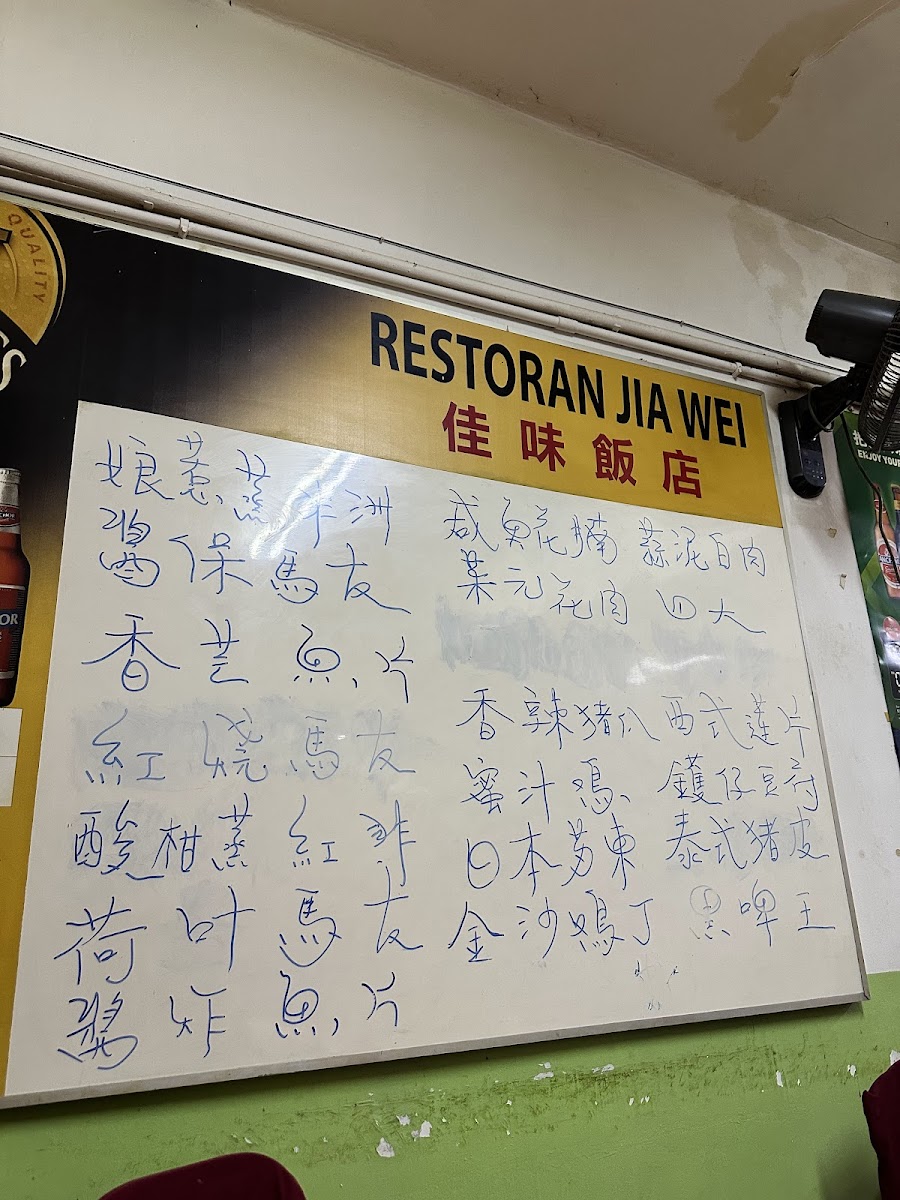 QUALITY
RESTORAN JIA WEI
佳味飯店
ENJOY YOUR
娘蒸 非洲
酱保馬友
香芒魚片
紅烧馬友
酸柑蒸紅非
荷叶馬友
酱炸魚片
咸魚花腩 蒜泥白肉
菜元花肉 四大
香辣猪爪 西式莲片
蜜汁鸡 鑊仔豆付
日本苏東 泰式猪皮
金沙鸡丁 黑啤王